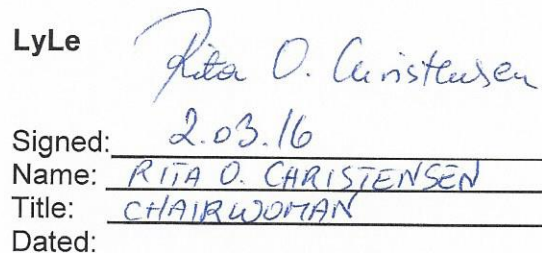 LyLe
Rita O. Christensen
Signed: 2.03.16
Name: RITA O. CHRISTENSEN
Title: CHAIRWOMAN
Dated: